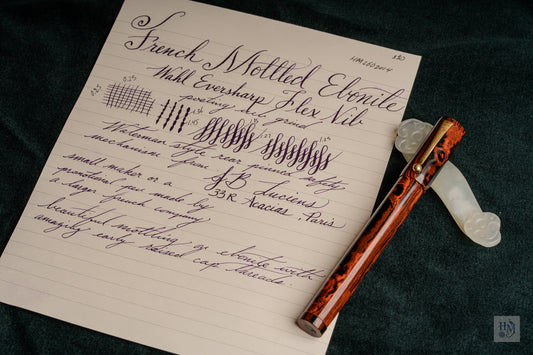 HM2602014
French Mottled Ebonite
Wahl Eversharp Flex Nib
posting nib grind
Waterman style rear pinned safety
mechanism from J.B Luciens
33 R. Acacias, Paris
small maker or a
promotional pen made by
a larger french company
beautiful mottling of ebonite with
amazing early raised cap threads.
HM